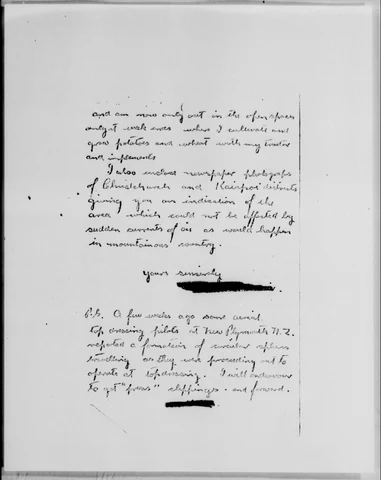 and am now only out in the open spaces
only at week ends where I cultivate and
grow potatoes and what with my tractor
and implements
I also enclose newspaper photographs
of Christchurch and Kaiapoi districts
giving you an indication of the
area which could not be affected by
sudden currents of air as would happen
in mountainous country.
Yours sincerely
P.S. A few weeks ago some aerial
top dressing pilots at New Plymouth N.Z.
reported a formation of circular spheres
travelling as they were proceeding out to
operate at topdressing. I will endeavour
to get "press" clippings - and forward.